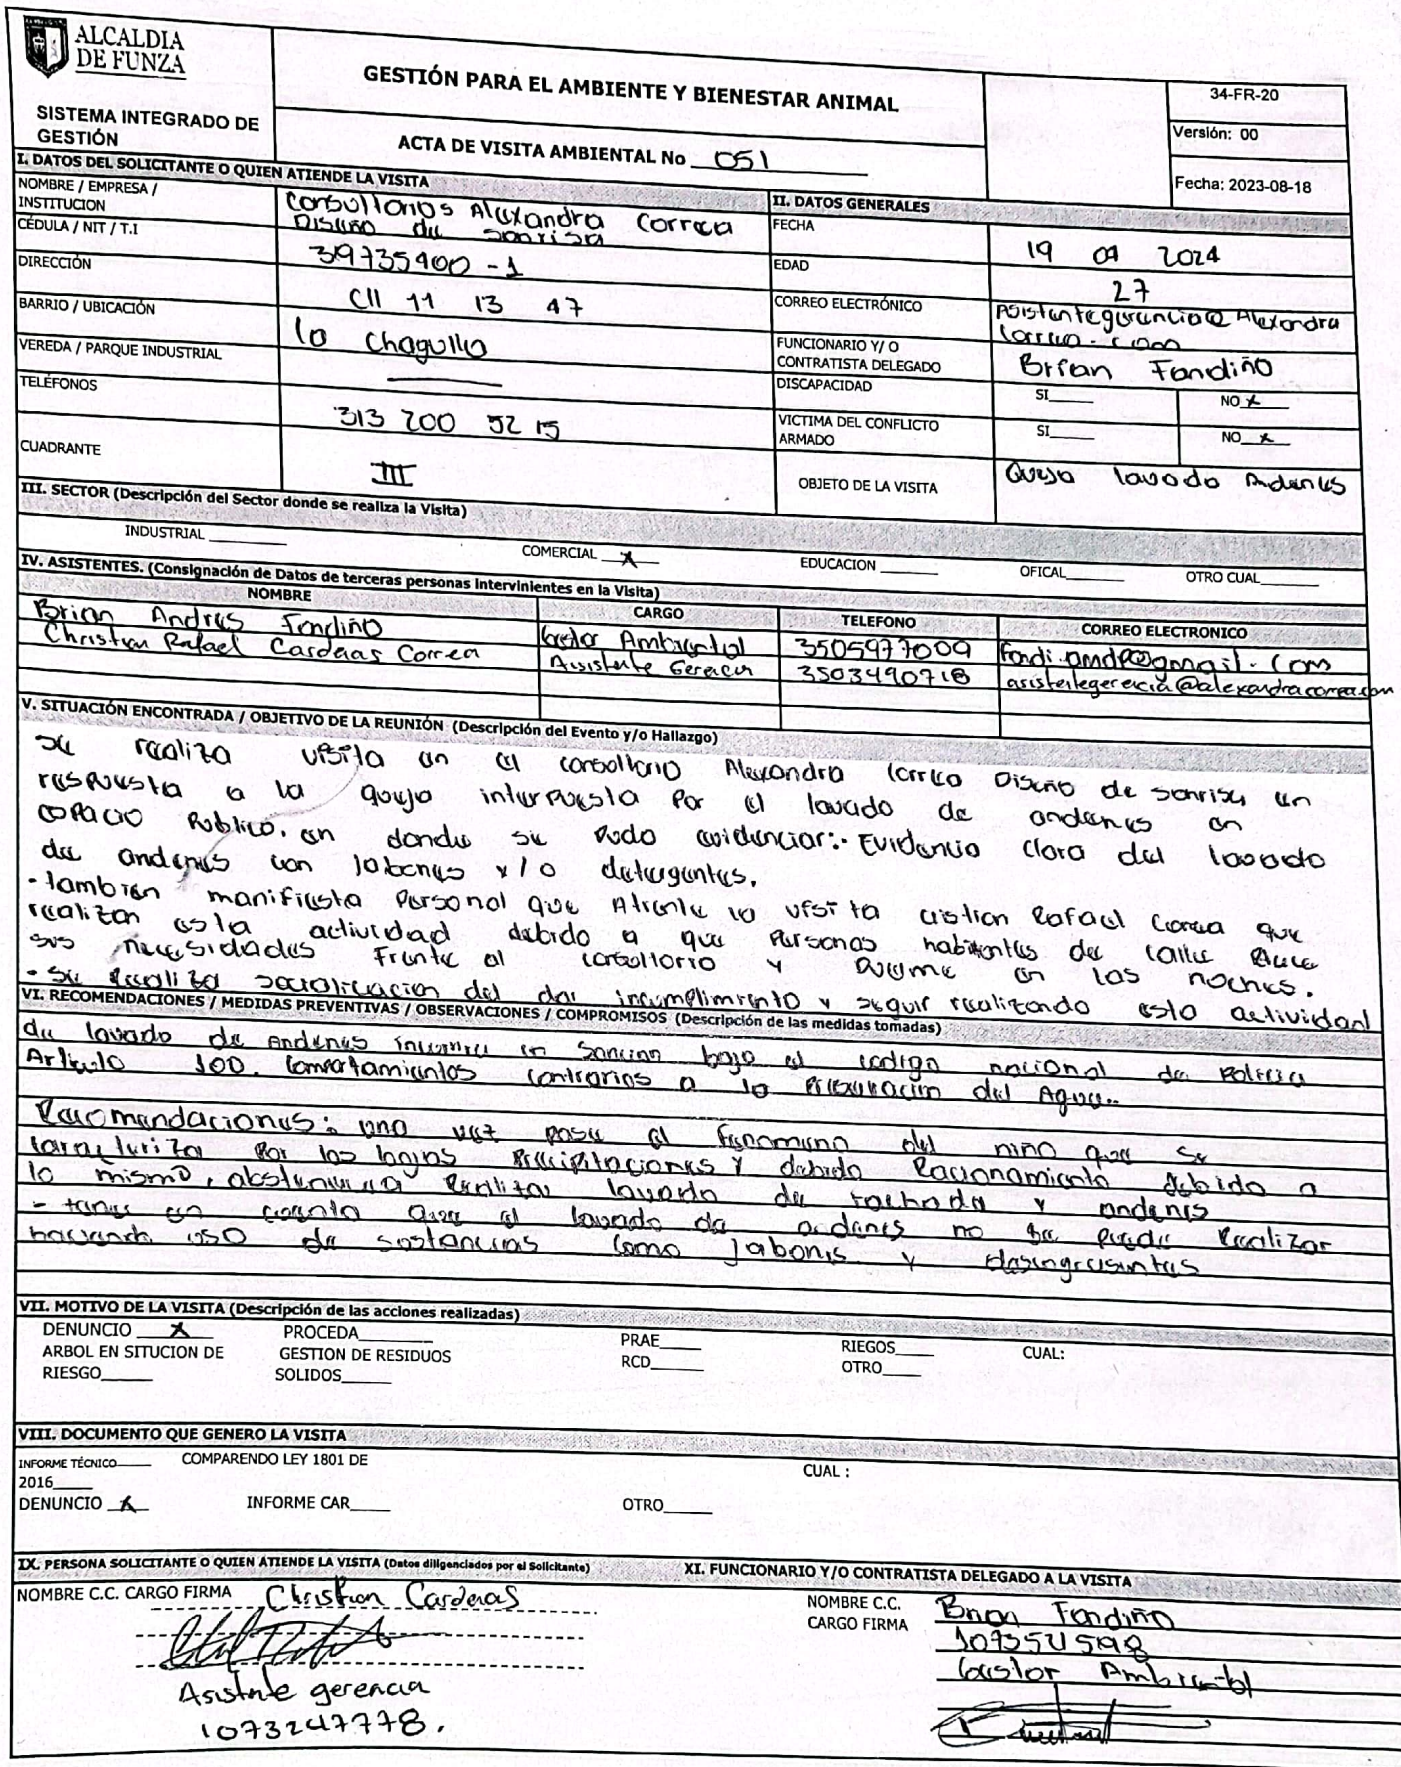 ALCALDIA
DE FUNZA
SISTEMA INTEGRADO DE
GESTIÓN
GESTIÓN PARA EL AMBIENTE Y BIENESTAR ANIMAL
ACTA DE VISITA AMBIENTAL No 051
34-FR-20
Versión: 00
Fecha: 2023-08-18
I. DATOS DEL SOLICITANTE O QUIEN ATIENDE LA VISITA
NOMBRE / EMPRESA /
INSTITUCION
Consultorios Alexandra Correa
Diseño de sonrisa
CÉDULA / NIT / T.I
39735900-1
DIRECCIÓN
Cll 11 13 47
BARRIO / UBICACIÓN
la chaguya
VEREDA / PARQUE INDUSTRIAL
TELÉFONOS
313 200 52 15
CUADRANTE
III
II. DATOS GENERALES
FECHA
19 04 2024
EDAD
27
CORREO ELECTRÓNICO
Asistentegerencia@Alexandra
correa.com
FUNCIONARIO Y/ O
CONTRATISTA DELEGADO
Brian Fandiño
DISCAPACIDAD
SI____ NO x
VICTIMA DEL CONFLICTO
ARMADO
SI____ NO x
OBJETO DE LA VISITA
Queja lavado Andenes
III. SECTOR (Descripción del Sector donde se realiza la Visita)
INDUSTRIAL ____ COMERCIAL x EDUCACION ____ OFICAL____ OTRO CUAL____
IV. ASISTENTES. (Consignación de Datos de terceras personas intervinientes en la Visita)
NOMBRE CARGO TELEFONO CORREO ELECTRONICO
Brian Andres Fandiño Gestor Ambiental 3505977009 fandi.amdp@gmail.com
Christian Rafael Cardenas Correa Assistente Gerencia 3503490718 asistentegerencia@alexandracorrea.com
V. SITUACIÓN ENCONTRADA / OBJETIVO DE LA REUNIÓN (Descripción del Evento y/o Hallazgo)
se realiza visita en el consultorio Alexandra Correa Diseño de sonrisa en
respuesta a la queja interpuesta por el lavado de andenes en
espacio Publico. en donde se pudo evidenciar:- Evidencia clara del lavado
de andenes con jabones y/o detergentes.
- tambien manifiesta personal que Atiende la visita cristian Rafael Correa que
realizan esta actividad debido a que personas habitantes de calle hace
sus necesidades frente al consultorio y duerme en las noches.
- se realiza socializacion del dar incumplimiento y seguir realizando esta actividad
VI. RECOMENDACIONES / MEDIDAS PREVENTIVAS / OBSERVACIONES / COMPROMISOS (Descripción de las medidas tomadas)
de lavado de andenes incurre en sancion bajo el codigo nacional de policia
Articulo 100. Comportamientos contrarios a la preservacion del Agua..
Recomendaciones: una vez pase el fenomeno del niño que se
caracteriza por las bajas precipitaciones y debido Racionamiento debido a
lo mismo, abstenerse a realizar lavado de fachada y andenes
- tener en cuenta que el lavado de andenes no se puede realizar
haciendo uso de sustancias como jabones y desengrasantes
VII. MOTIVO DE LA VISITA (Descripción de las acciones realizadas)
DENUNCIO x PROCEDA____ PRAE____ RIEGOS____ CUAL:
ARBOL EN SITUCION DE GESTION DE RESIDUOS RCD____ OTRO____
RIESGO____ SOLIDOS____
VIII. DOCUMENTO QUE GENERO LA VISITA
INFORME TÉCNICO____ COMPARENDO LEY 1801 DE CUAL :
2016____
DENUNCIO x INFORME CAR____ OTRO____
IX. PERSONA SOLICITANTE O QUIEN ATIENDE LA VISITA (Datos diligenciados por el Solicitante)
NOMBRE C.C. CARGO FIRMA Christian Cardenas
Asistente gerencia
1073247778.
XI. FUNCIONARIO Y/O CONTRATISTA DELEGADO A LA VISITA
NOMBRE C.C.
CARGO FIRMA
Brian Fandiño
Gestor Ambiental